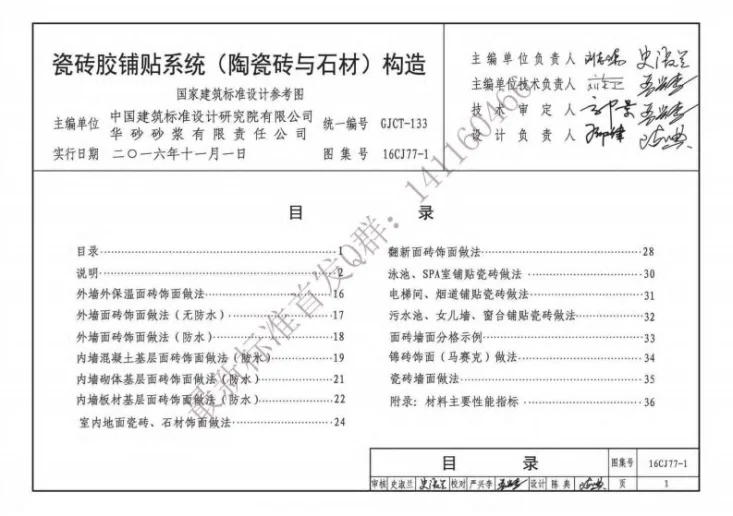 瓷砖胶铺贴系统（陶瓷砖与石材）构造
国家建筑标准设计参考图
主编单位 中国建筑标准设计研究院有限公司 华砂砂浆有限责任公司
统一编号 GJCT-133
实行日期 二〇一六年十一月一日
图集号 16CJ77-1
主编单位负责人
主编单位技术负责人
技术审定人
设计负责人
目 录
目录 1
说明 2
外墙外保温面砖饰面做法 16
外墙面砖饰面做法（无防水） 17
外墙面砖饰面做法（防水） 18
内墙混凝土基层面砖饰面做法（防水） 19
内墙砌体基层面砖饰面做法（防水） 21
内墙板材基层面砖饰面做法（防水） 22
室内地面瓷砖、石材饰面做法 24
翻新面砖饰面做法 28
泳池、SPA室铺贴瓷砖做法 30
电梯间、烟道铺贴瓷砖做法 31
污水池、女儿墙、窗台铺贴瓷砖做法 32
面砖墙面分格示例 33
锦砖饰面（马赛克）做法 34
瓷砖墙面做法 35
附录：材料主要性能指标 36
最新标准首发Q群：141160466
目 录 图集号 16CJ77-1
审核 史淑兰 校对 严兴李 设计 陈典 页 1